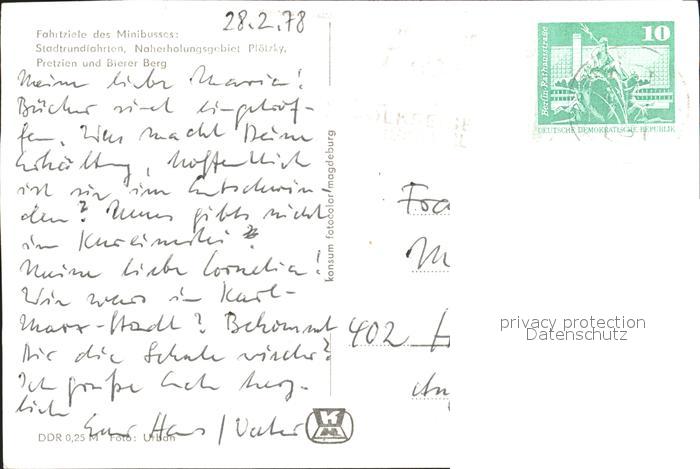 28.2.78
Fahrtziele des Minibusses:
Stadtrundfahrten, Naherholungsgebiet Plötzky,
Pretzien und Bierer Berg
Meine liebe Maria!
Bücher sind eingetrof-
fen. Was macht Deine
Erkältung, hoffentlich
ist sie im Entschwin-
den? Neues gibts nicht
im
Meine liebe Cornelia!
Wie wars in Karl-
Marx-Stadt? Bekommt
Dir die Schule wieder?
Ich grüße Euch herz-
lich
Euer Hans / Vater
DDR 0,25 M Foto: Urban
konsum fotocolor/magdeburg
Berlin, Rathausstraße
10
DEUTSCHE DEMOKRATISCHE REPUBLIK
Fra
M
402 H
privacy protection
Datenschutz